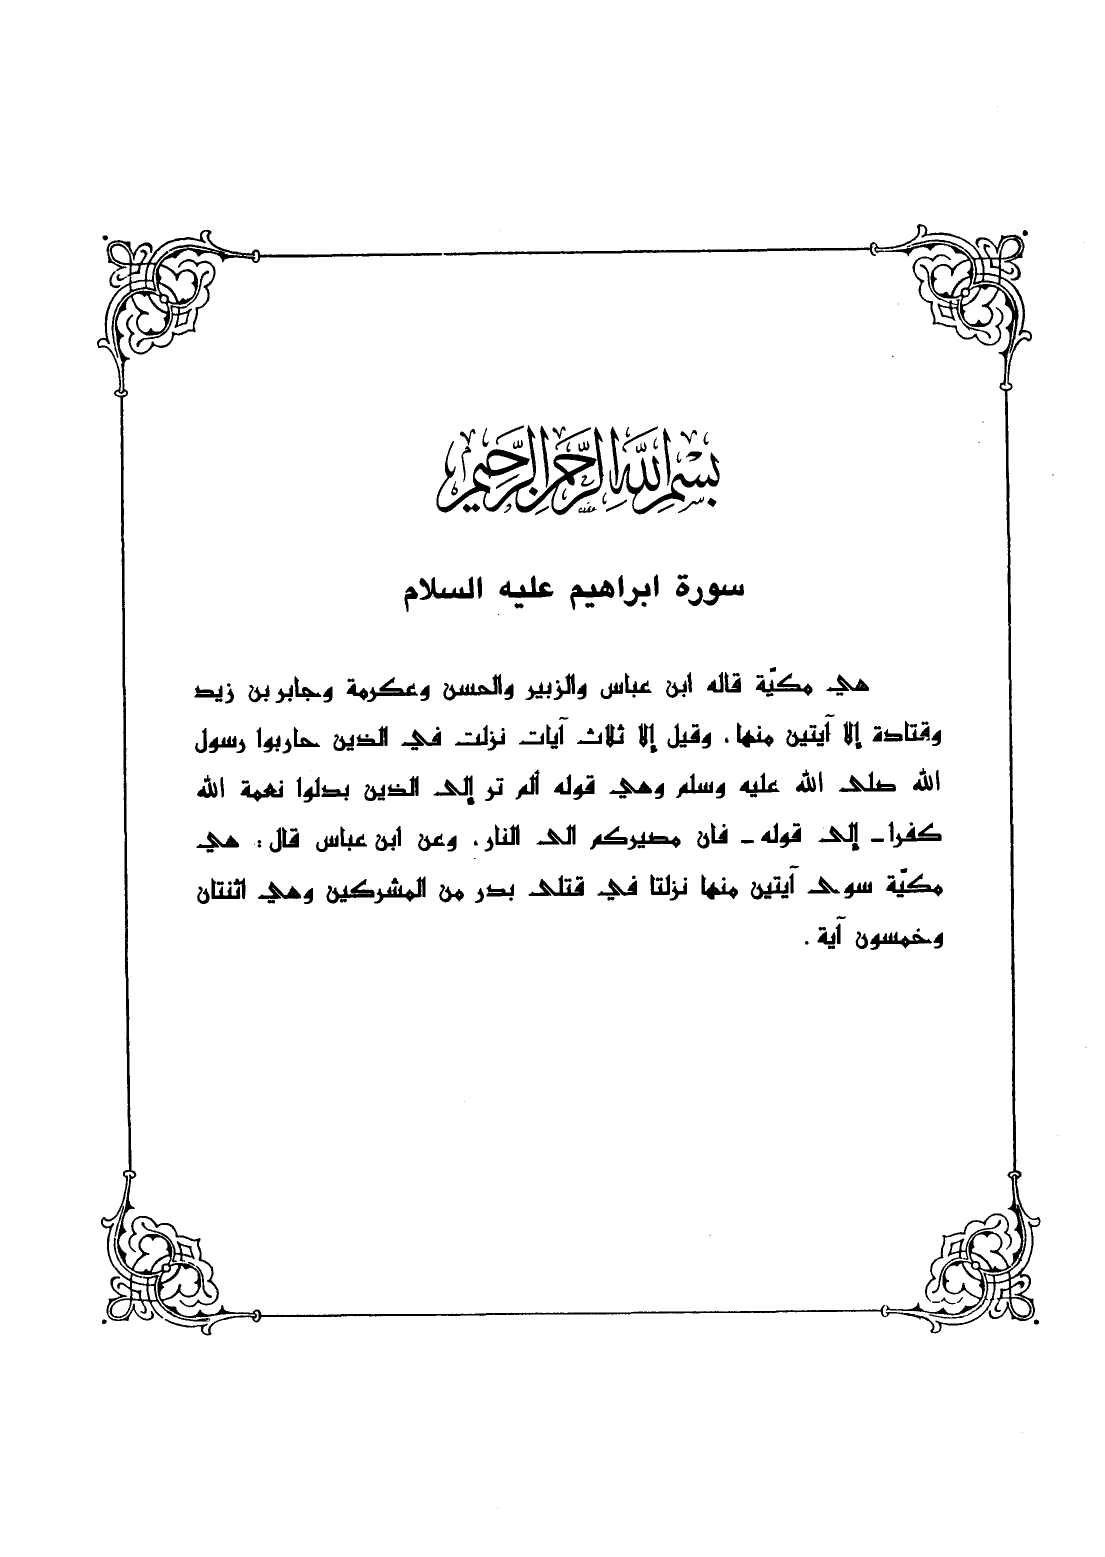 بسم الله الرحمن الرحيم
سورة ابراهيم عليه السلام
هي مكيّة قاله ابن عباس والزبير والحسن وعكرمة وجابر بن زيد
وقتادة إلا آيتين منها، وقيل إلا ثلاث آيات نزلت في الذين حاربوا رسول
الله صلى الله عليه وسلم وهي قوله ألم تر إلى الذين بدلوا نعمة الله
كفرا ـ إلى قوله ـ فان مصيركم الى النار، وعن ابن عباس قال : هي
مكيّة سوى آيتين منها نزلتا في قتلى بدر من المشركين وهي اثنتان
وخمسون آية .